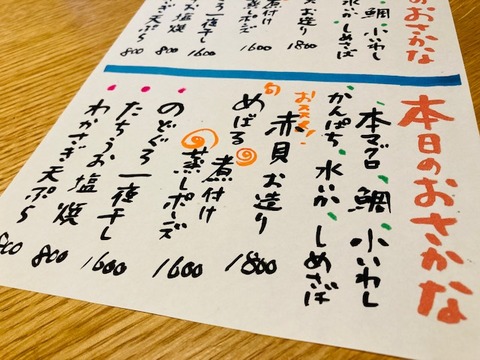 のおさかな
鯛、小いわし
水いか、しめさば
お造り 1800
煮付け
蒸しポーズ 1600
一夜干し 1600
お塩焼 800
天ぷら 800
本日のおさかな
本マグロ、鯛、小いわし
かんぱち、水いか、しめさば
おススメ!
赤貝お造り 1800
旬
めばる 煮付け
蒸しポーズ 1600
のどぐろ一夜干し 1600
たちうお塩焼 800
わかさぎ天ぷら 800